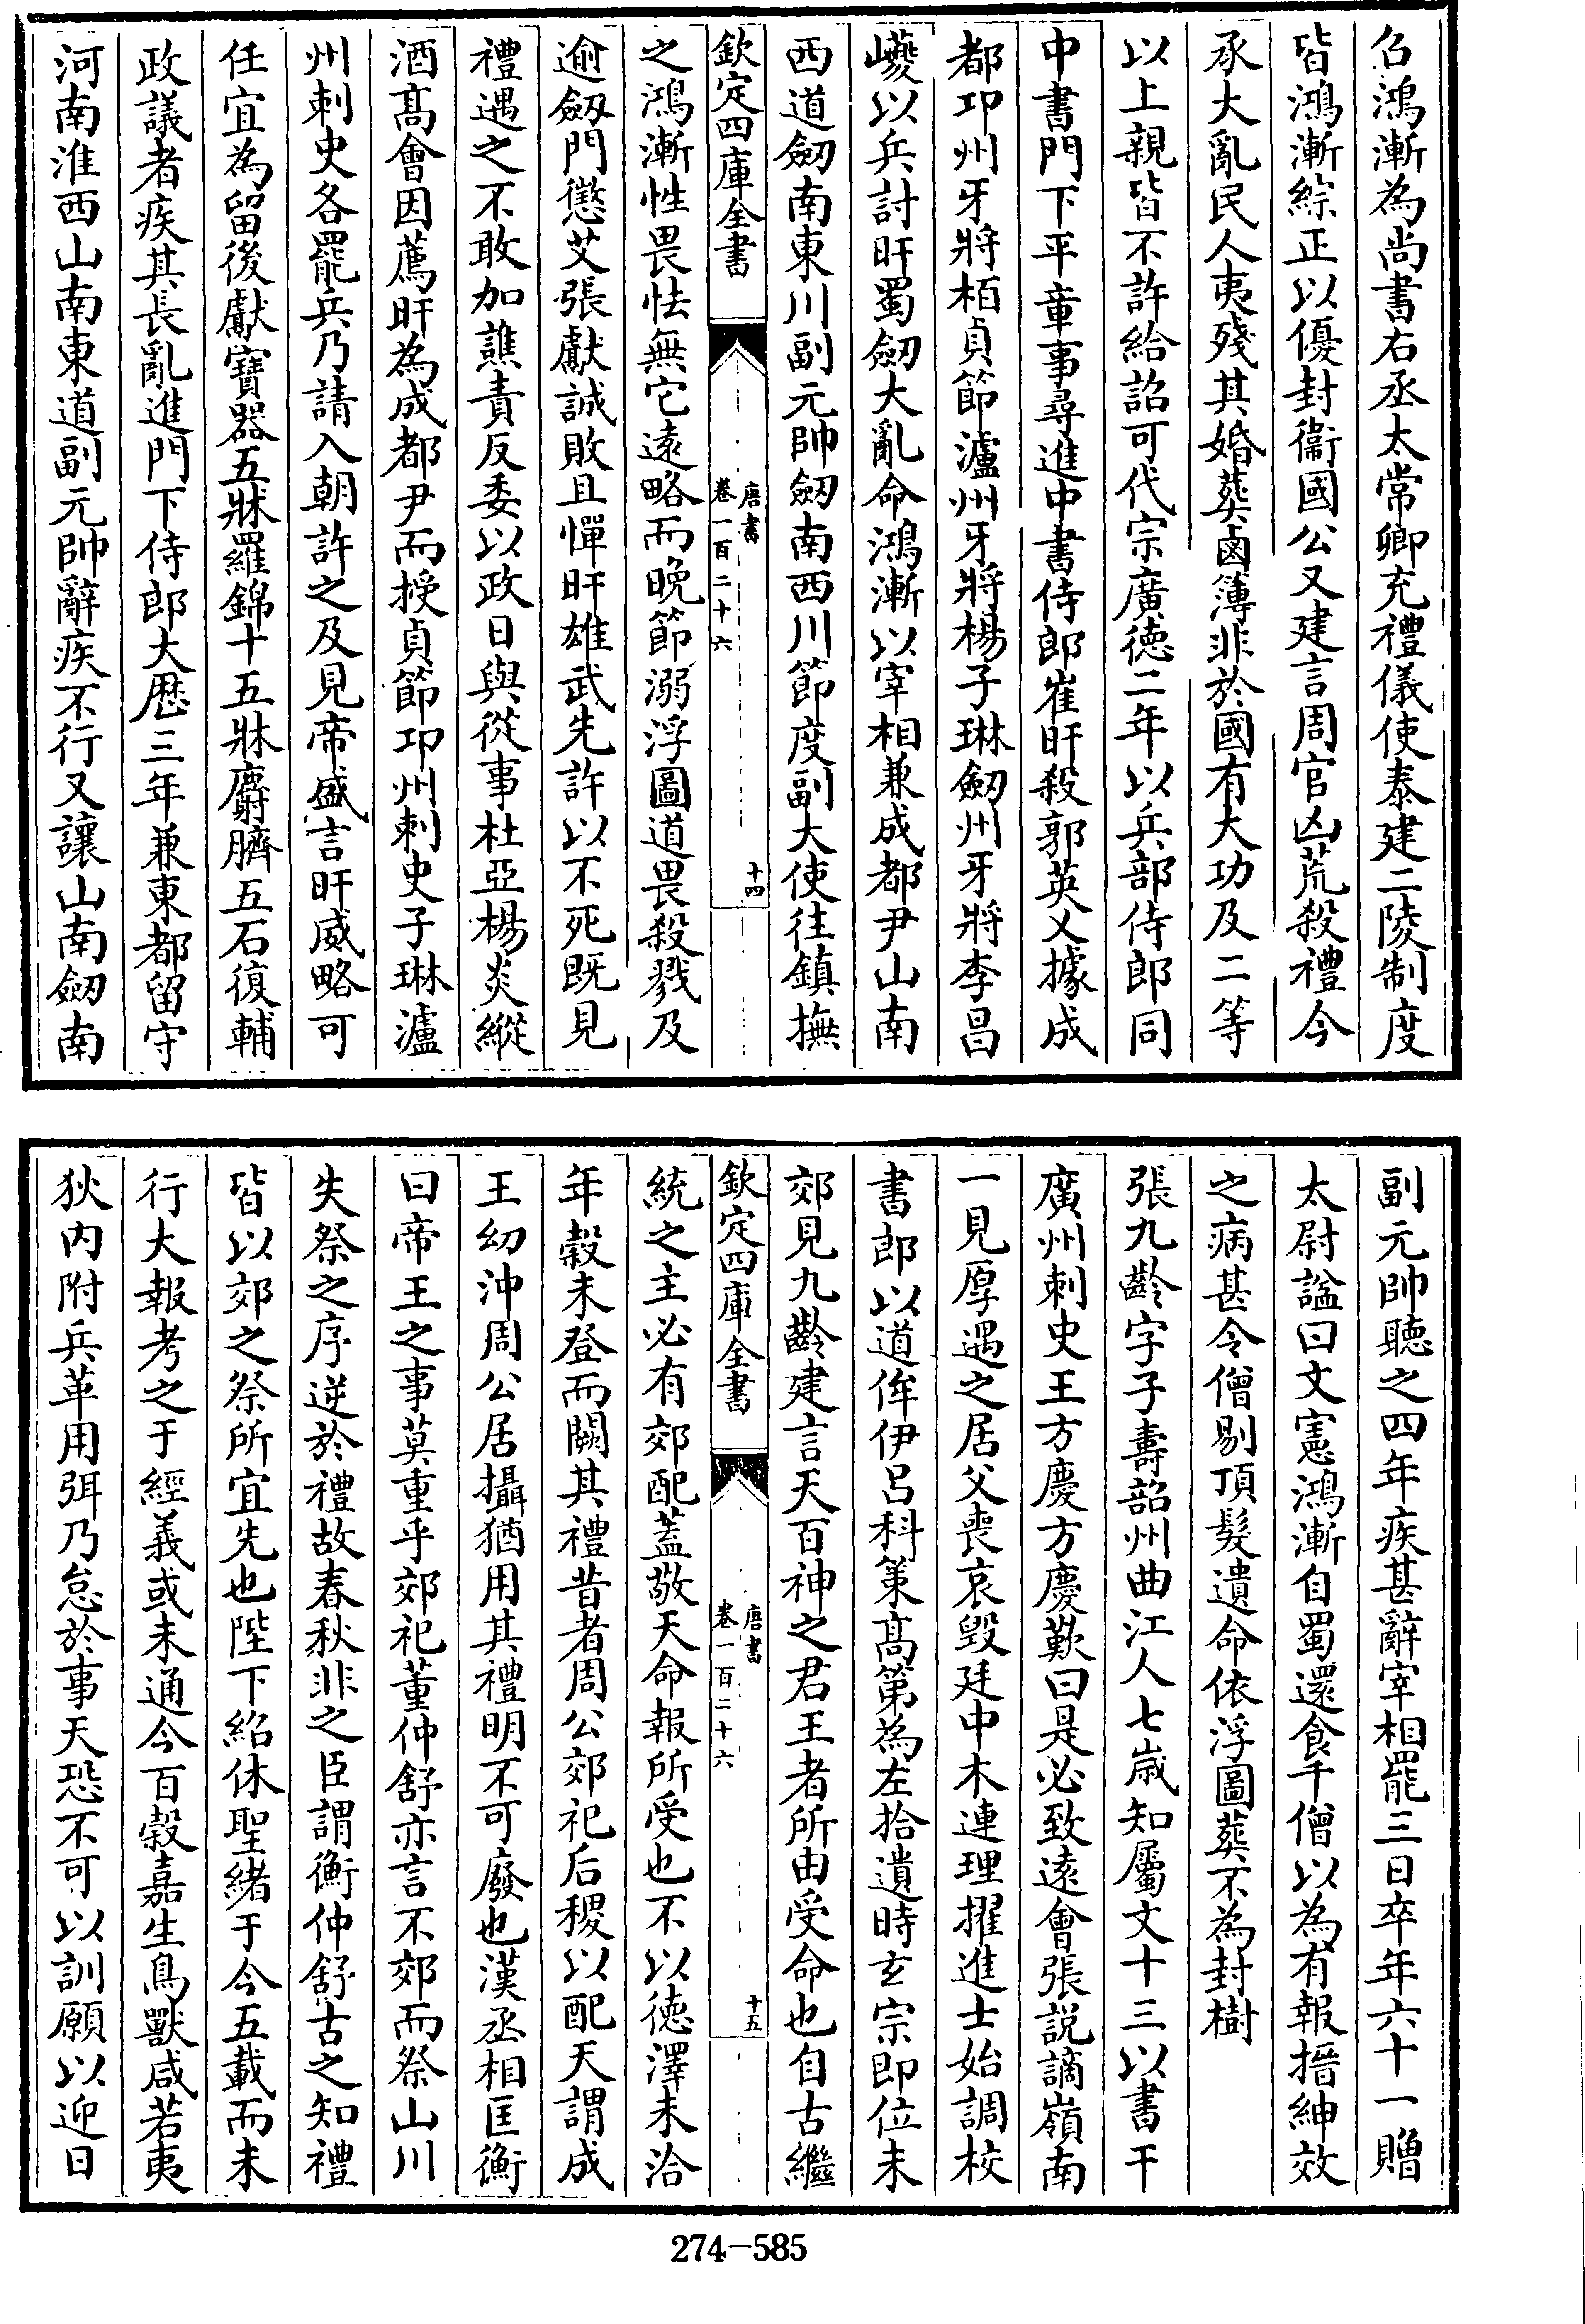 召鴻漸為尚書右丞太常卿充禮儀使泰建二陵制度
皆鴻漸綜正以優封衞國公又建言周官凶荒殺禮今
承大亂民人夷殘其婚葬鹵簿非於國有大功及二等
以上親皆不許給詔可代宗廣徳二年以兵部侍郎同
中書門下平章事尋進中書侍郎崔旰殺郭英乂據成
都邛州牙將栢貞節瀘州牙將楊子琳劒州牙將李昌
巙以兵討旰蜀劒大亂命鴻漸以宰相兼成都尹山南
西道劒南東川副元帥劒南西川節度副大使往鎮撫
欽定四庫全書
唐書
卷一百二十六
十四
之鴻漸性畏怯無它逺略而晚節溺浮圖道畏殺戮及
逾劒門懲艾張獻誠敗且憚旰雄武先許以不死既見
禮遇之不敢加譙責反委以政日與從事杜亞楊炎縱
酒髙會因薦旰為成都尹而授貞節邛州刺史子琳瀘
州刺史各罷兵乃請入朝許之及見帝盛言旰威略可
任宜為留後獻寶器五牀羅錦十五牀麝臍五石復輔
政議者疾其長亂進門下侍郎大厯三年兼東都留守
河南淮西山南東道副元帥辭疾不行又讓山南劒南
副元帥聽之四年疾甚辭宰相罷三日卒年六十一贈
太尉諡曰文憲鴻漸自蜀還食千僧以為有報搢紳效
之病甚令僧剔頂髮遺命依浮圖葬不為封樹
張九齡字子夀韶州曲江人七嵗知屬文十三以書干
廣州刺史王方慶方慶歎曰是必致逺會張説謫嶺南
一見厚遇之居父喪哀毀廷中木連理擢進士始調校
書郎以道侔伊吕科策髙第為左拾遺時玄宗即位未
郊見九齡建言天百神之君王者所由受命也自古繼
欽定四庫全書
唐書
卷一百二十六
十五
統之主必有郊配蓋敬天命報所受也不以德澤未洽
年榖未登而闕其禮昔者周公郊祀后稷以配天謂成
王幼沖周公居攝猶用其禮明不可廢也漢丞相匡衡
曰帝王之事莫重乎郊祀董仲舒亦言不郊而祭山川
失祭之序逆於禮故春秋非之臣謂衡仲舒古之知禮
皆以郊之祭所宜先也陛下紹休聖緒于今五載而未
行大報考之于經義或未通今百榖嘉生鳥獸咸若夷
狄内附兵革用弭乃怠於事天恐不可以訓願以迎日
274-585